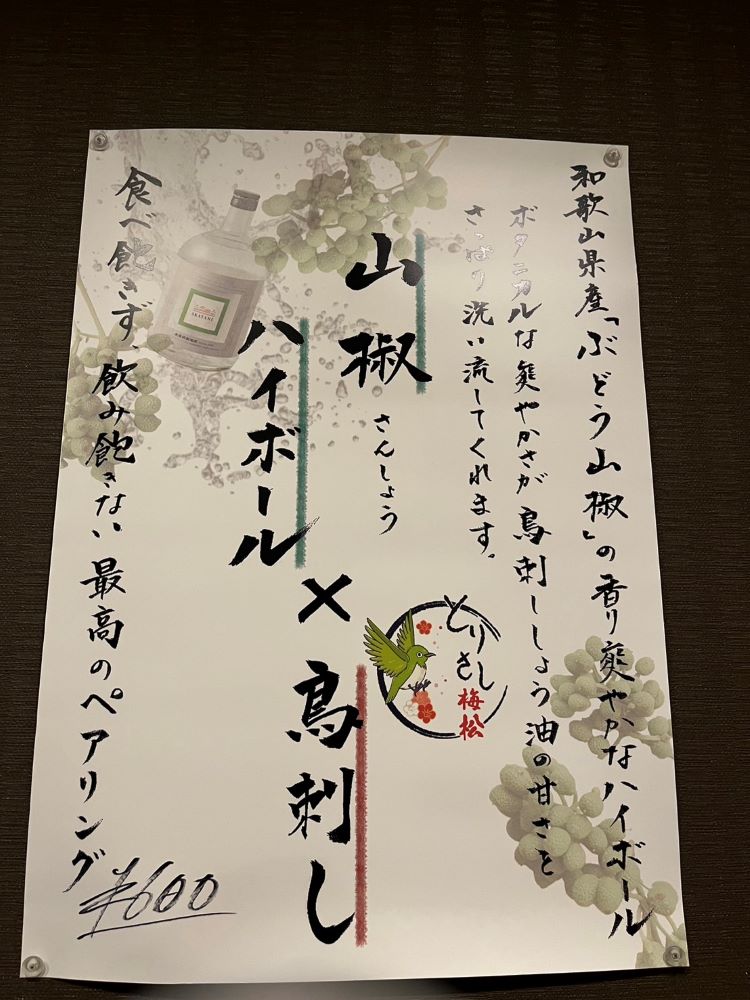 和歌山県産「ぶどう山椒」の香り爽やかなハイボール
ボタニカルな爽やかさが鳥刺ししょう油の甘さを
さっぱり洗い流してくれます。
山椒
さんしょう
ハイボール
×鳥刺し
とりさし
梅松
食べ飽きず、飲み飽きない最高のペアリング
¥600
AKAYANE